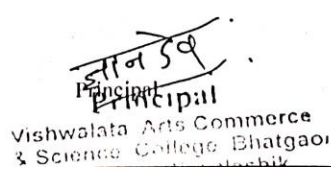 ज्ञानदेव
Principal
Principal
Vishwalata Arts Commerce
& Science College Bhatgaon
Nashik